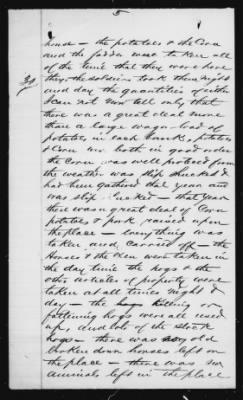 5
house — the potatoes & the Corn
and the fodder was taken all
of the time that they were here
they the soldiers took them night
and day the quantities of either
I can not now tell only that
there was a great deal more
than a large wagon load of
potatoes in each bank, potatoes
& Corn was both in good order
the Corn was well protected from
the weather was slip shucked &
had been gathered that year and
was slip shucked — that year
there was a great deal of Corn
potatoes & pork raised upon
the place — everything was
taken and carried off — the
Horses & the Oxen were taken in
the day time the hogs & the
other articles of property were
taken at all times night &
day — the hogs killing or
fattening hogs were all used
up, and lots of the stock
hogs — there was no old
broken down horses left on
the place — there was no
animals left in the place